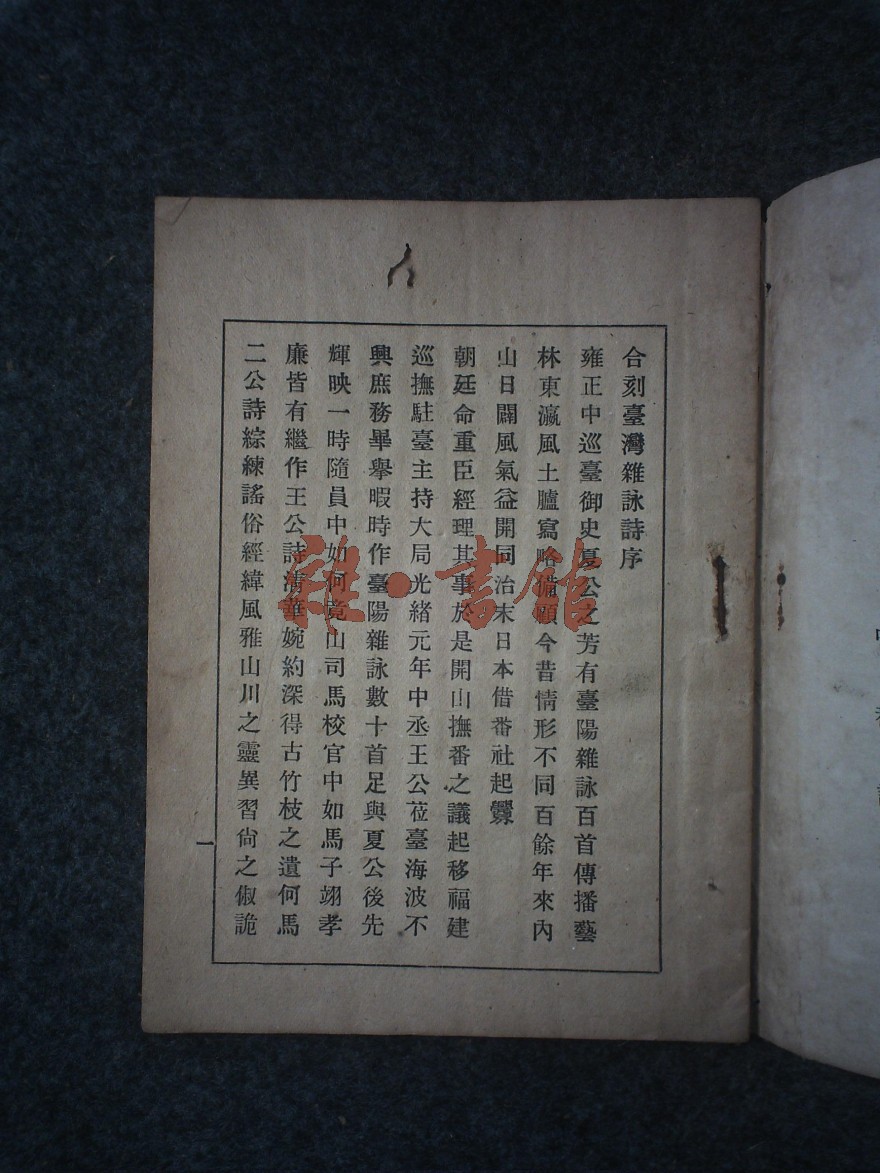 合刻臺灣雜詠詩序
雍正中巡臺御史夏公之芳有臺陽雜詠百首傳播藝
林東瀛風土臚寫略備顧今昔情形不同百餘年來內
山日闢風氣益開同治末日本借番社起釁
朝廷命重臣經理其事於是開山撫番之議起移福建
巡撫駐臺主持大局光緒元年中丞王公莅臺海波不
興庶務畢舉暇時作臺陽雜詠數十首足與夏公後先
輝映一時隨員中如何竟山司馬校官中如馬子翊孝
廉皆有繼作王公詩清華婉約深得古竹枝之遺何馬
二公詩綜練謠俗經緯風雅山川之靈異習尙之俶詭
一
雜·書館